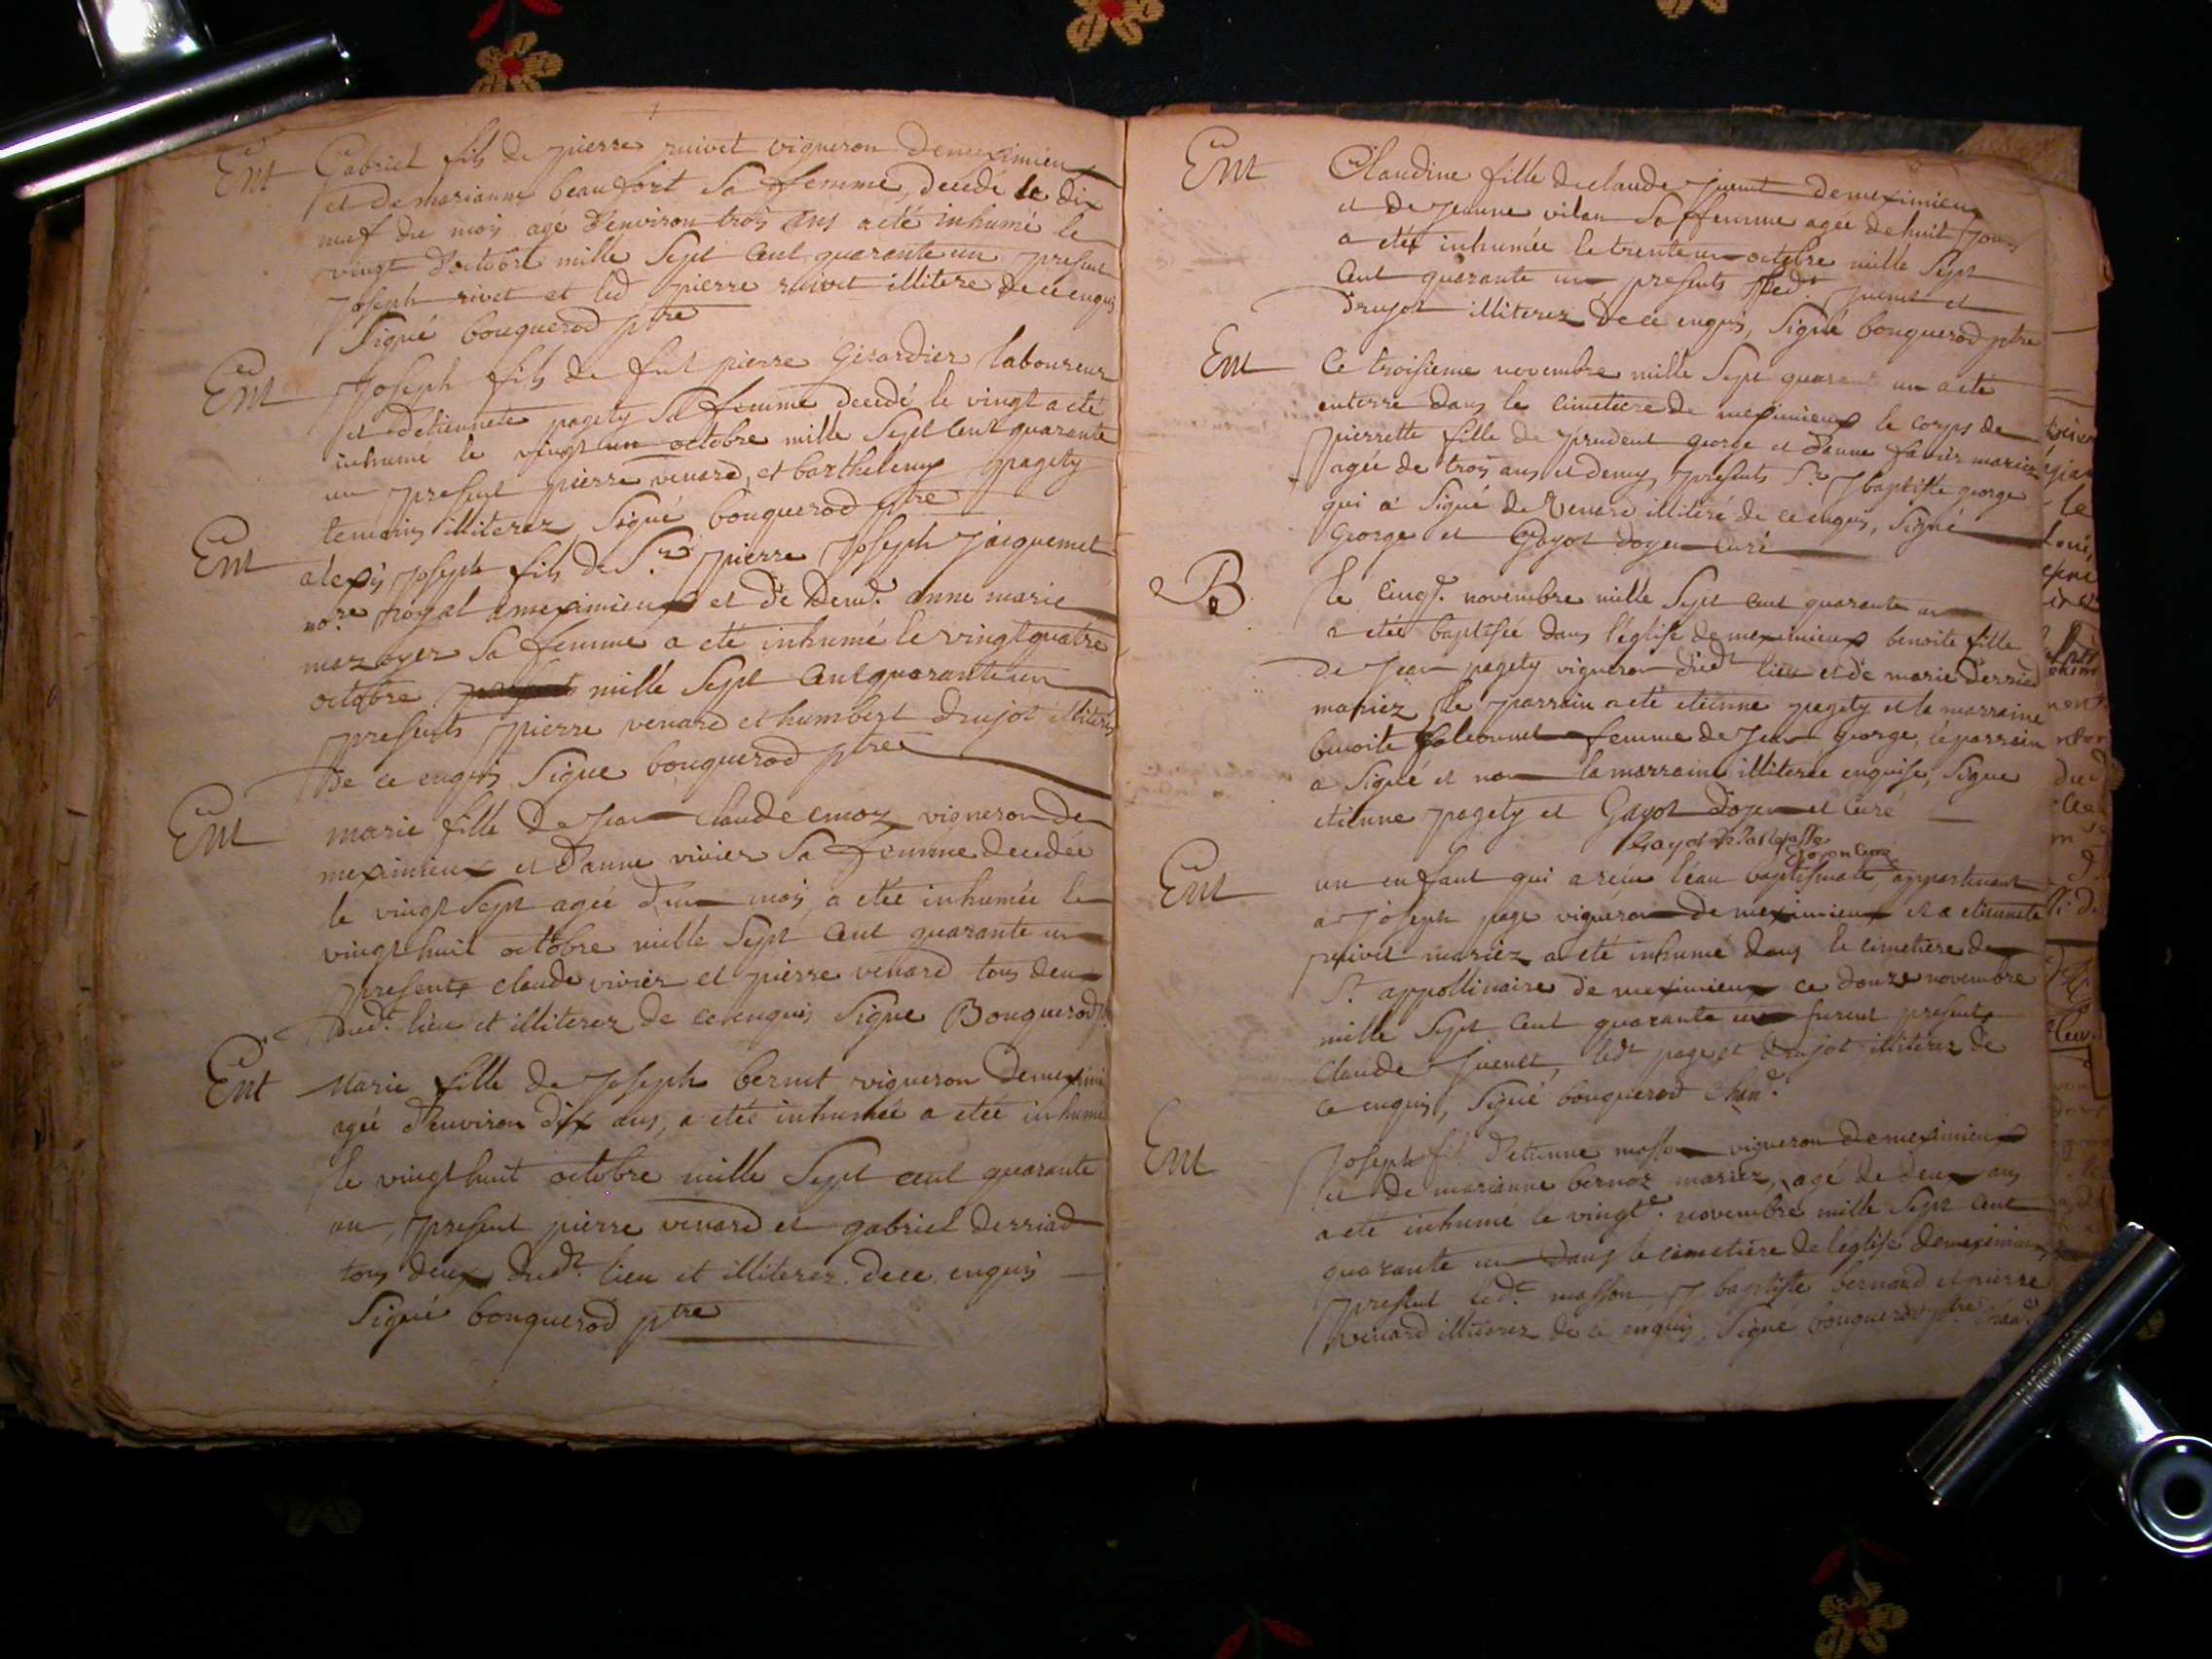 Ent Gabriel fils de pierre ruivet vigneron demeximieu
et de marianne beaufort Sa femme, decedé le dix
neuf du mois agé d'environ trois ans a eté inhumé le
vingt d'octobre mille Sept cent quarante un present
Joseph rivet et led pierre ruivet illitere de ce enquis
Signé bouquerod ptre
Ent Joseph fils de fut pierre Girardier laboureur
et detiennete pagety Sa femme decedé le vingt a eté
inhumé le vingt un octobre mille Sept cent quarante
un present pierre venard, et barthelemy pagety
temoins illiterez Signé bouquerod ptre
Ent alexis Joseph fils de Sr. pierre Joseph Jacquemet
nore. royal a meximieux et de Demd. anne marie
mazoyer Sa femme a eté inhumé le vingt quatre
octobre mille Sept cent quarante un
presents pierre venard et humbert drujot illiterez
De ce enquis Signe bouquerod ptre
Ent marie fille de Jean Claude emoz vigneron de
meximieux et d'anne vivier Sa femme decedée
le vingt Sept agée d'un mois, a eteé inhumée le
vingt huit octobre mille Sept cent quarante un
presents claude vivier et pierre venard tous deux
dudt. lieu et illiterez de ce enquis Signe Bouquerod
Ent Marie fille de Joseph bernet vigneron demeximi
agée d'environ dix ans, a eteé inhumée a eteé inhumé
le vingt huit octobre mille Sept cent quarante
un, present pierre venard et gabriel derriad
tous deux dudt. lieu et illiterez de ce enquis
Signé bouquerod ptre
Ent Claudine fille de claude Juenet demeximieux
et de Jeanne vilan Sa femme agée de huit Jours
a eteé inhumée le trente un octobre mille Sept
Cent quarante un presents ledt. Juenet et
Drujot illiterez de ce enquis, Signé bouquerod ptre
Ent Ce troisieme novembre mille Sept quarante un a eté
enterré dans le cimetiere de meximieux le corps de
pierrette fille de prudent george et d'anne favier mariez
agée de trois ans et demy, presents Sr. J baptiste george
qui a Signé de Venard illiteré de ce enquis, Signé
George et Gayot doyen curé
B le cinqe. novembre mille Sept cent quarante un
a eteé baptisée dans l'église de meximieux benoite fille
de Jean pagety vigneron dudt lieu et de marie Derriad
mariez, le parrain a eté etienne pagety et la marraine
benoite falconnet femme de Jean George, le parrain
a Signé et non la marraine illiterée enquise, Signe
etienne pagety et Gayot doyen et Curé
Gayot
doyen curé
Ent un enfant qui a reçu l'eau baptismale, appartenant
a Joseph page vigneron de meximieux et a etiennete
ruivet mariez a eté inhumé dans le cimetiere de
St. appollinaire de meximieux ce douze novembre
mille Sept cent quarante un furent presents
Claude Juenet, ledt page, et drujot illiterez de
ce enquis, Signé bouquerod chane.
Ent Joseph fils d'etienne masson vigneron demeximieux
et de marianne bernoz mariez, agé de deux ans
a eté inhumé le vingte. novembre mille Sept cent
quarante un dans le cimetiere de l'église demeximieux
present ledt. masson, J baptiste bernard et pierre
venard illiterez de ce enquis, Signé bouquerod ptre chane.